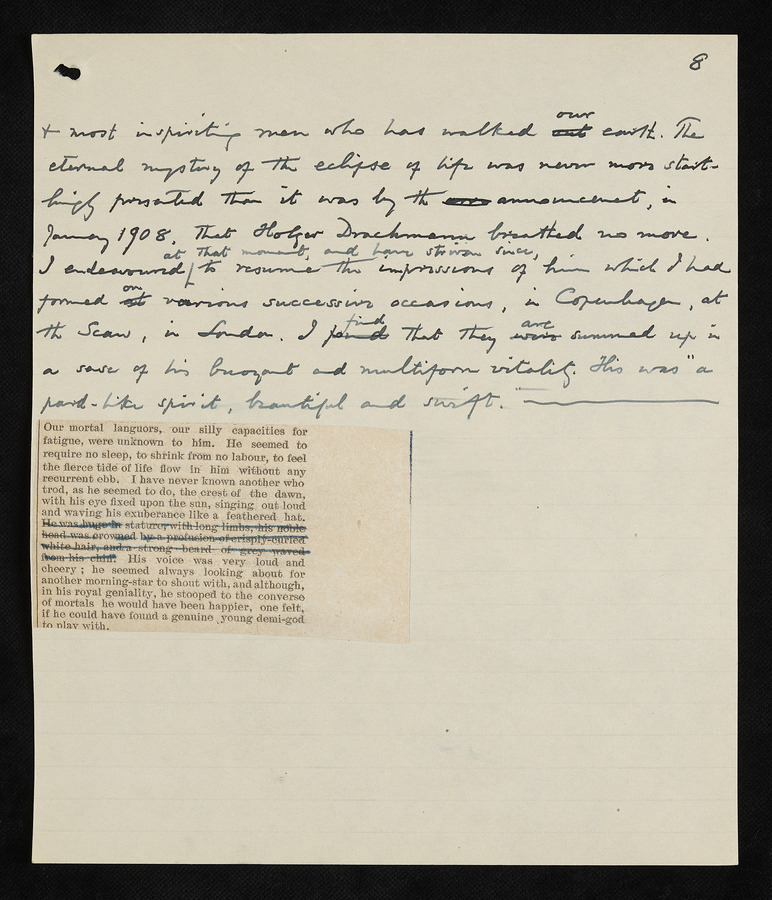 8
+ most inspiriting men who has walked our earth. The
eternal mystery of the eclipse of life was never more start-
lingly presented than it was by the announcement, in
January 1908, that Holger Drachmann breathed no more.
at that moment, and have striven since,
I endeavoured to resume the impressions of him which I had
formed on various successive occasions, in Copenhagen, at
the Scaw, in London. I find that they are summed up in
a sense of his buoyant and multiform vitality. His was "a
pard-like spirit, beautiful and swift."
Our mortal languors, our silly capacities for
fatigue, were unknown to him. He seemed to
require no sleep, to shrink from no labour, to feel
the fierce tide of life flow in him without any
recurrent ebb. I have never known another who
trod, as he seemed to do, the crest of the dawn,
with his eye fixed upon the sun, singing out loud
and waving his exuberance like a feathered hat.
He was huge in stature, with long limbs, his noble
head was crowned by a profusion of crisply-curled
white hair, and a strong beard of grey waved
from his chin. His voice was very loud and
cheery; he seemed always looking about for
another morning-star to shout with, and although,
in his royal geniality, he stooped to the converse
of mortals he would have been happier, one felt,
if he could have found a genuine young demi-god
to play with.